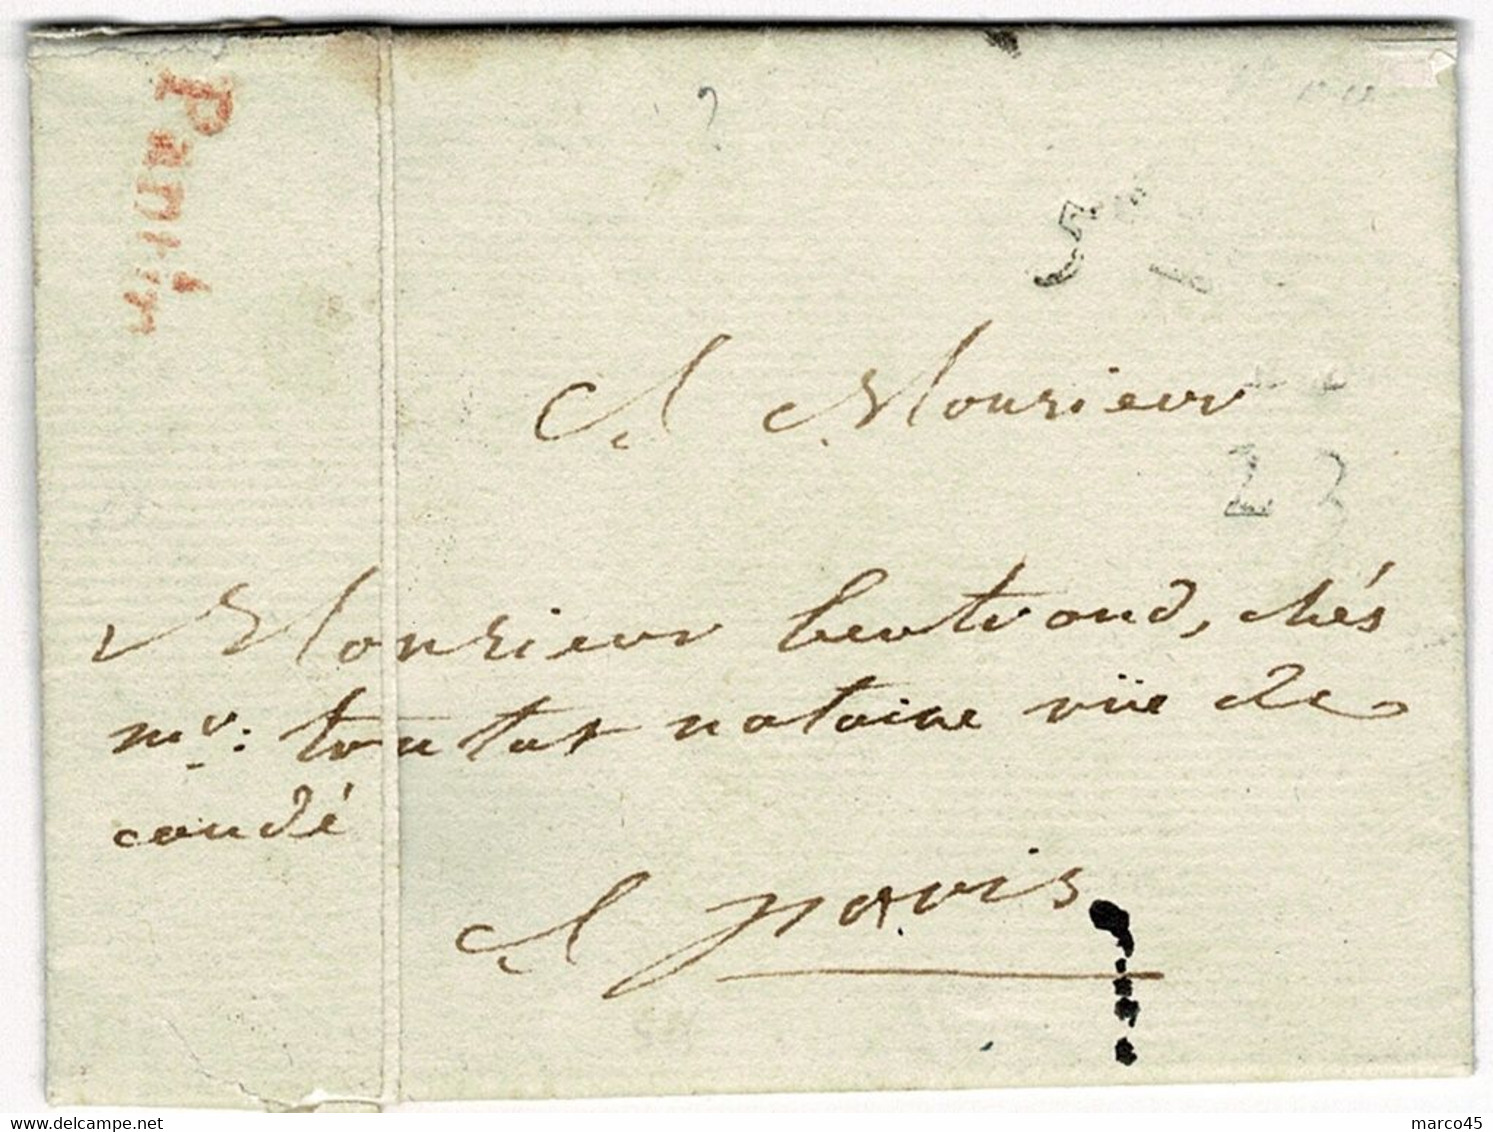 Pantin
5e
A Monsieur
23
Monsieur bertrand, chés
mr: toutat notaire rüe de
condé
A paris
delcampe.net
marco45